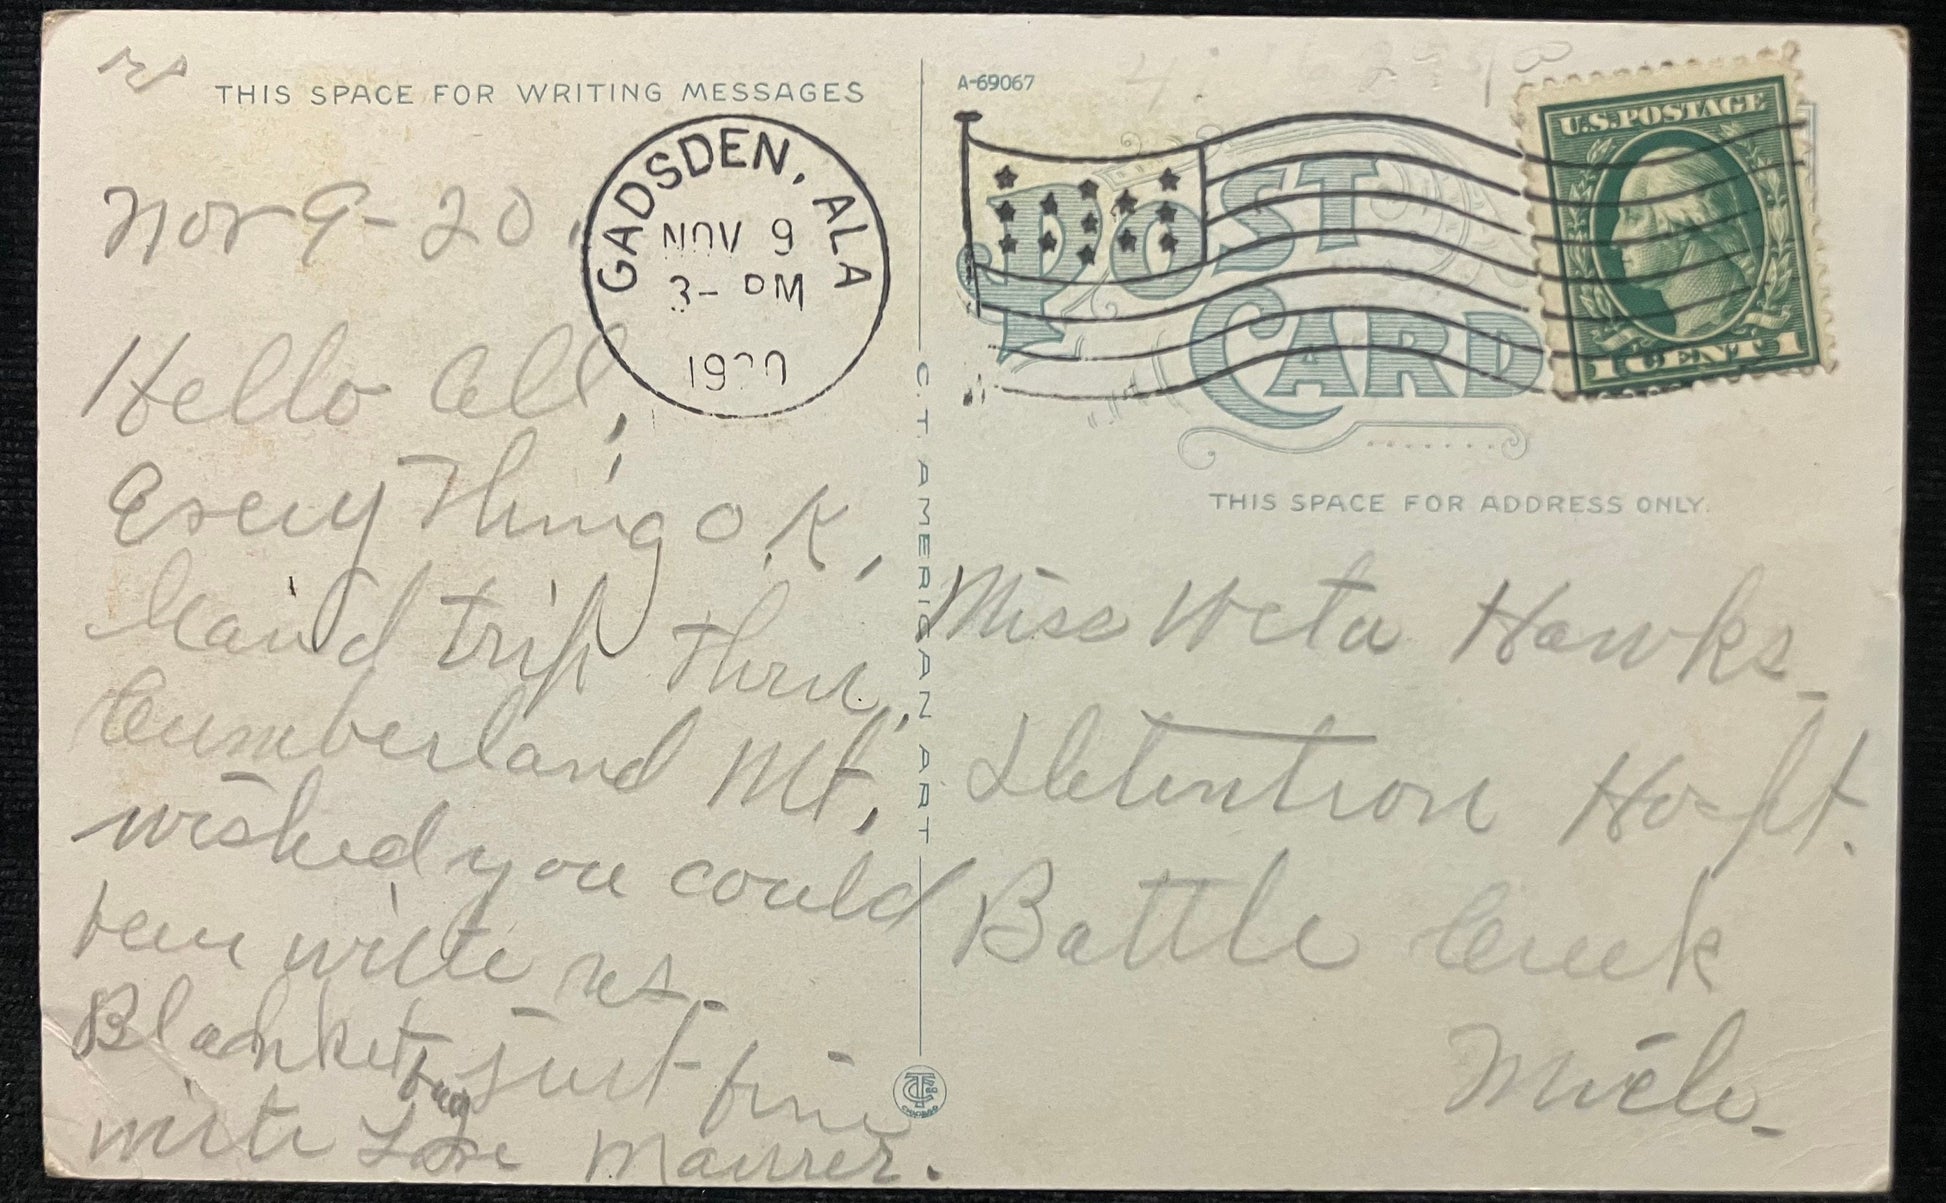 us
THIS SPACE FOR WRITING MESSAGES
Nov 9-20.
Hello all,
Every Thing O.K,
Grand trip thru
Cumberland Mt,
wished you could
been with us.
Blanket bag just fine
with Love Maurer.
GADSDEN, ALA
NOV 9
3- PM
1920
C.T. AMERICAN ART
CHICAGO
A-69067
POST
CARD
U.S. POSTAGE
1 CENT 1
THIS SPACE FOR ADDRESS ONLY.
Miss Weta Hawks
Detention Hospt.
Battle Creek
Mich.